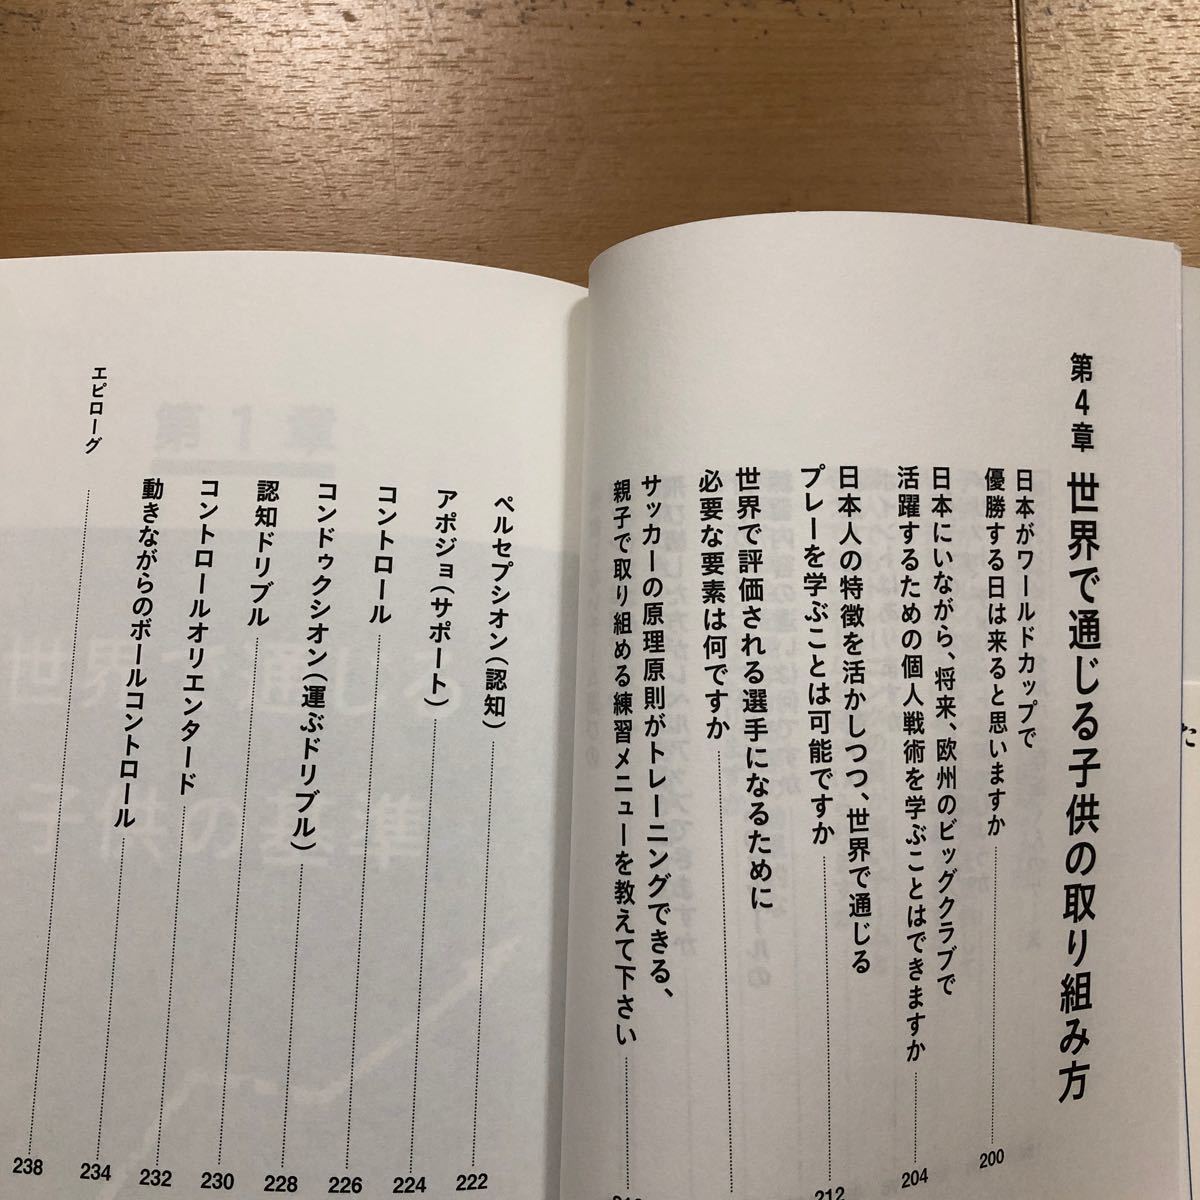 第4章 世界で通じる子供の取り組み方
日本がワールドカップで
優勝する日は来ると思いますか 200
日本にいながら、将来、欧州のビッグクラブで
活躍するための個人戦術を学ぶことはできますか 204
日本人の特徴を活かしつつ、世界で通じる
プレーを学ぶことは可能ですか 212
世界で評価される選手になるために
必要な要素は何ですか
サッカーの原理原則がトレーニングできる、
親子で取り組める練習メニューを教えて下さい
ペルセプシオン(認知) 222
アポジョ(サポート) 224
コントロール 226
コンドゥクシオン(運ぶドリブル) 228
認知ドリブル 230
コントロールオリエンタード 232
動きながらのボールコントロール 234
エピローグ 238
第1章
世界で通じる
子供の基準
た